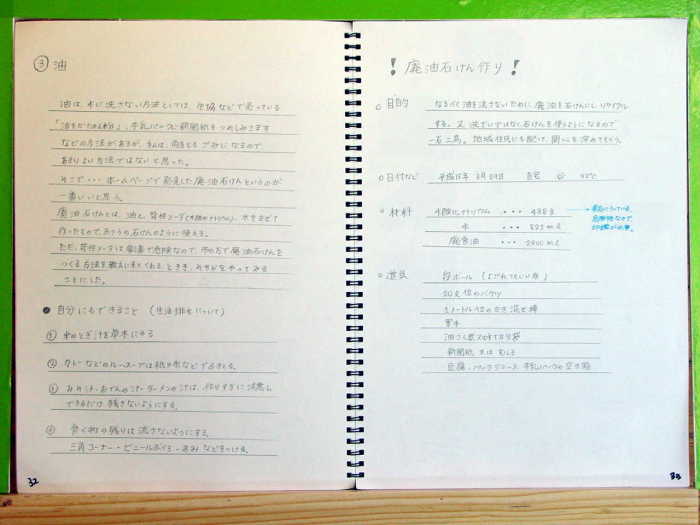 ③ 油
油は、水に流さない方法としては、生協などで売っている
「油をかためる粉」、牛乳パックに新聞紙をつめしみさす
などの方法があるが、それは、両方ともごみになるので
あまりよい方法ではないと思った。
そこで・・・ホームページで発見した廃油石けんというのが
一番いいと思う。
廃油石けんとは、油と、苛性ソーダ(水酸化ナトリウム)、水をまぜて
作ったもので、ふつうの石けんのように使える。
ただ、苛性ソーダは劇薬で危険なので、市の方で廃油石けんを
つくる方法を教えに来てくれるとき、みせかをやってみる
ことにした。
● 自分にもできること (生活排水について)
① 米のとぎ汁を草木にやる
② カレーなどのルーソースでは紙や布などでふきとる。
③ みそ汁・おでんの汁・ラーメンの汁は、作りすぎに注意し
できるだけ残さないようにする。
④ 食べ物の残りは流さないようにする。
三角コーナー・ビニールぶくろ・あみなどをつける。
32
! 廃油石けん作り !
○ 目的 なるべく油を流さないために、廃油を石けんにし、リサイクル
する。又、洗ざいではなく石けんを使うようになるので
一石二鳥。地域住民にも配り、関心を深めてもらう。
○ 日付など 平成15年 8月29日
○ 材料 水酸化ナトリウム ・・・
水 ・・・
廃食油 ・・・
○ 道具 段ボール (よごれてもいい服)
20ℓ位のバケツ
1メートル位のかき混ぜ棒
軍手
新聞紙 又は
豆腐・パック・牛乳パックの空き箱